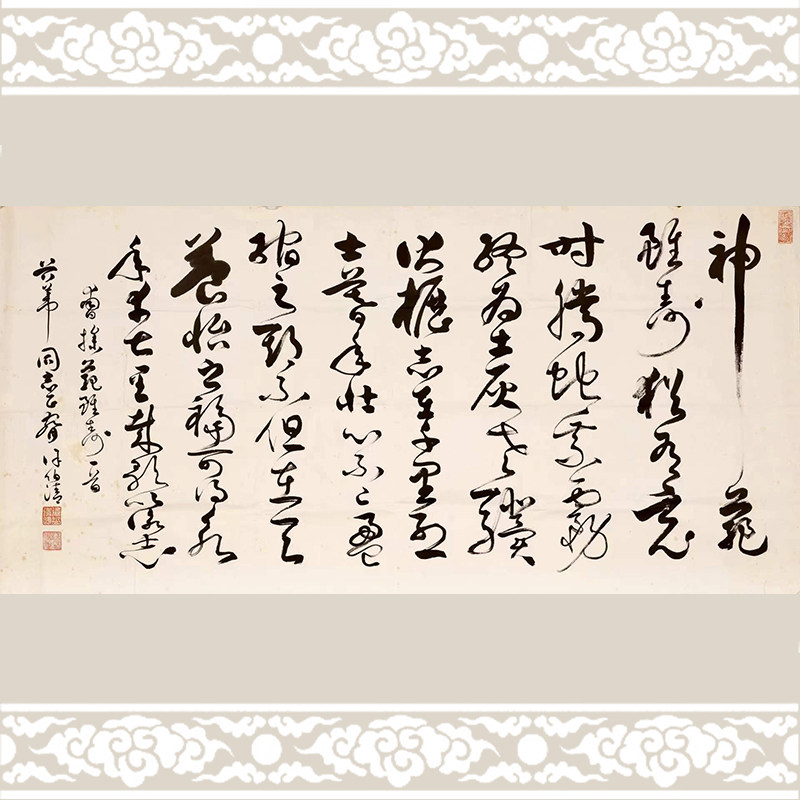 神龜
雖壽猶有竟
时騰蛇乘霧
終為土灰老驥
伏櫪志在千里烈
士暮年壯心不已盈
縮之期不但在天
養怡之福可得永
年幸甚至哉歌以詠志
曹操龜雖壽一首
同志正